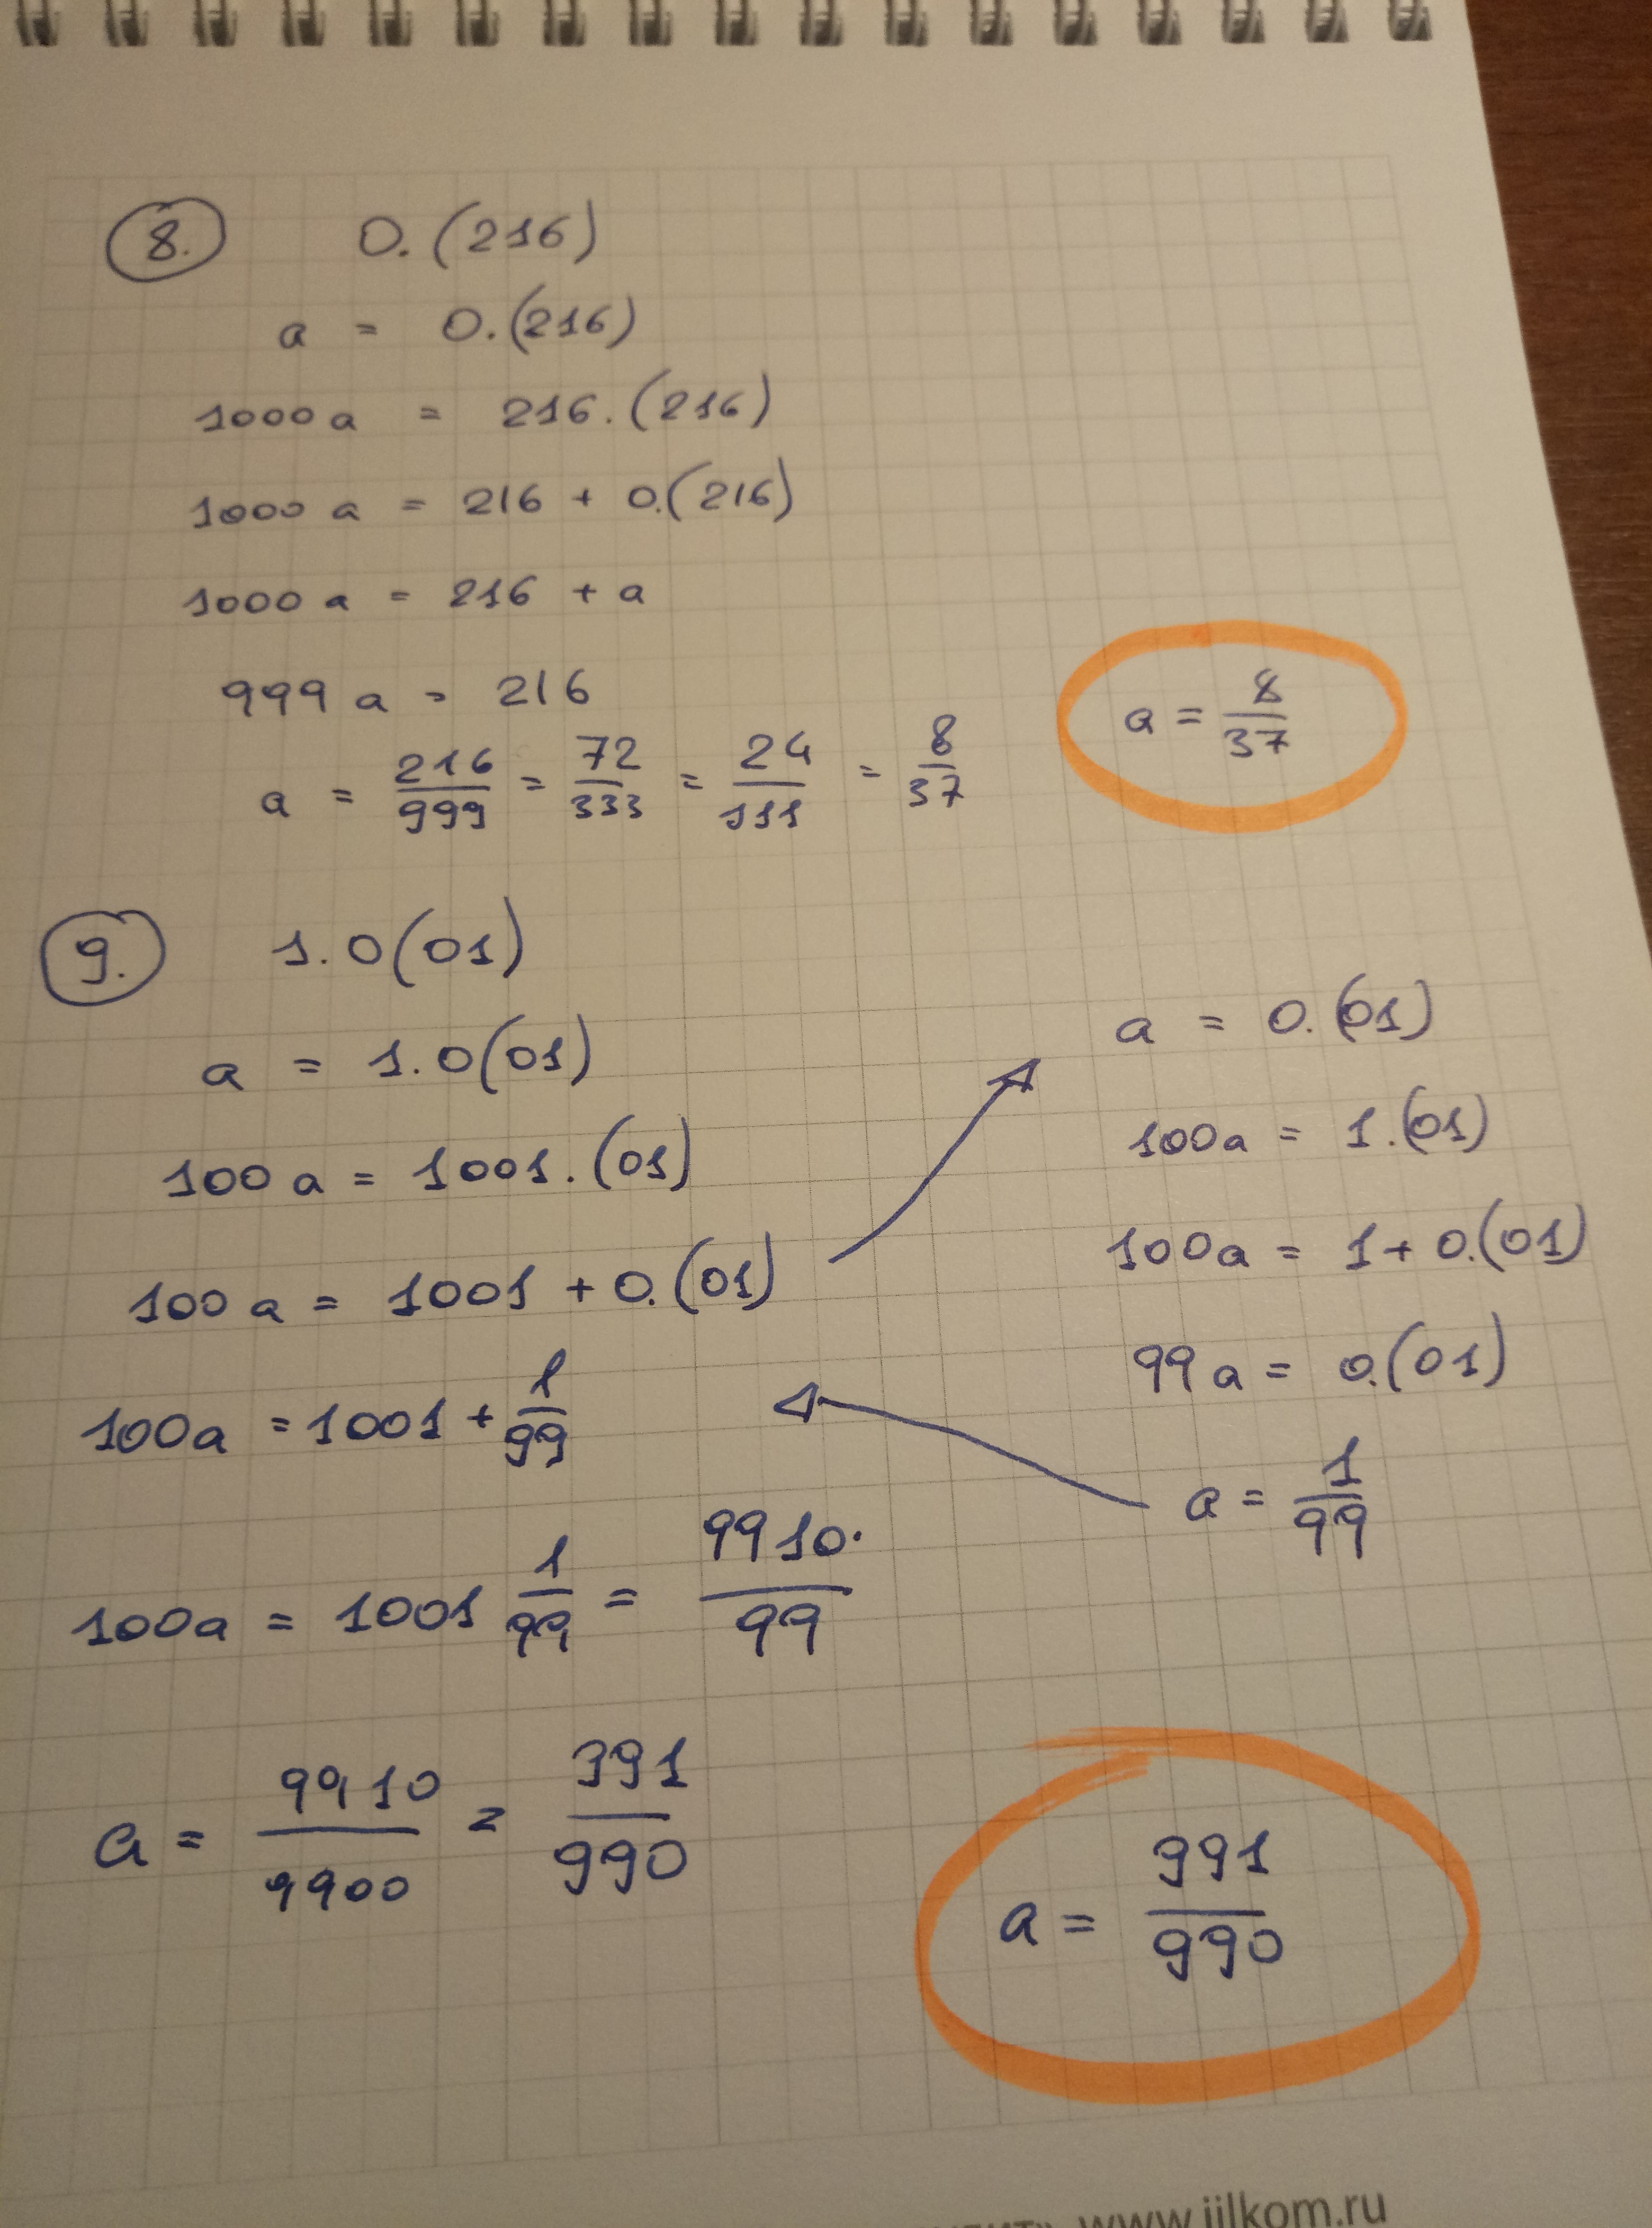 8. 0.(216)
a = 0.(216)
1000a = 216.(216)
1000a = 216 + 0.(216)
1000a = 216 + a
999a = 216
a = 216/999 = 72/333 = 24/111 = 8/37
a = 8/37
9. 1.0(01)
a = 1.0(01)
100a = 1001.(01)
100a = 1001 + 0.(01)
a = 0.(01)
100a = 1.(01)
100a = 1 + 0.(01)
99a = 0.(01)
a = 1/99
100a = 1001 + 1/99
100a = 1001 1/99 = 9910/99
a = 9910/9900 = 991/990
a = 991/990
www.iilkom.ru